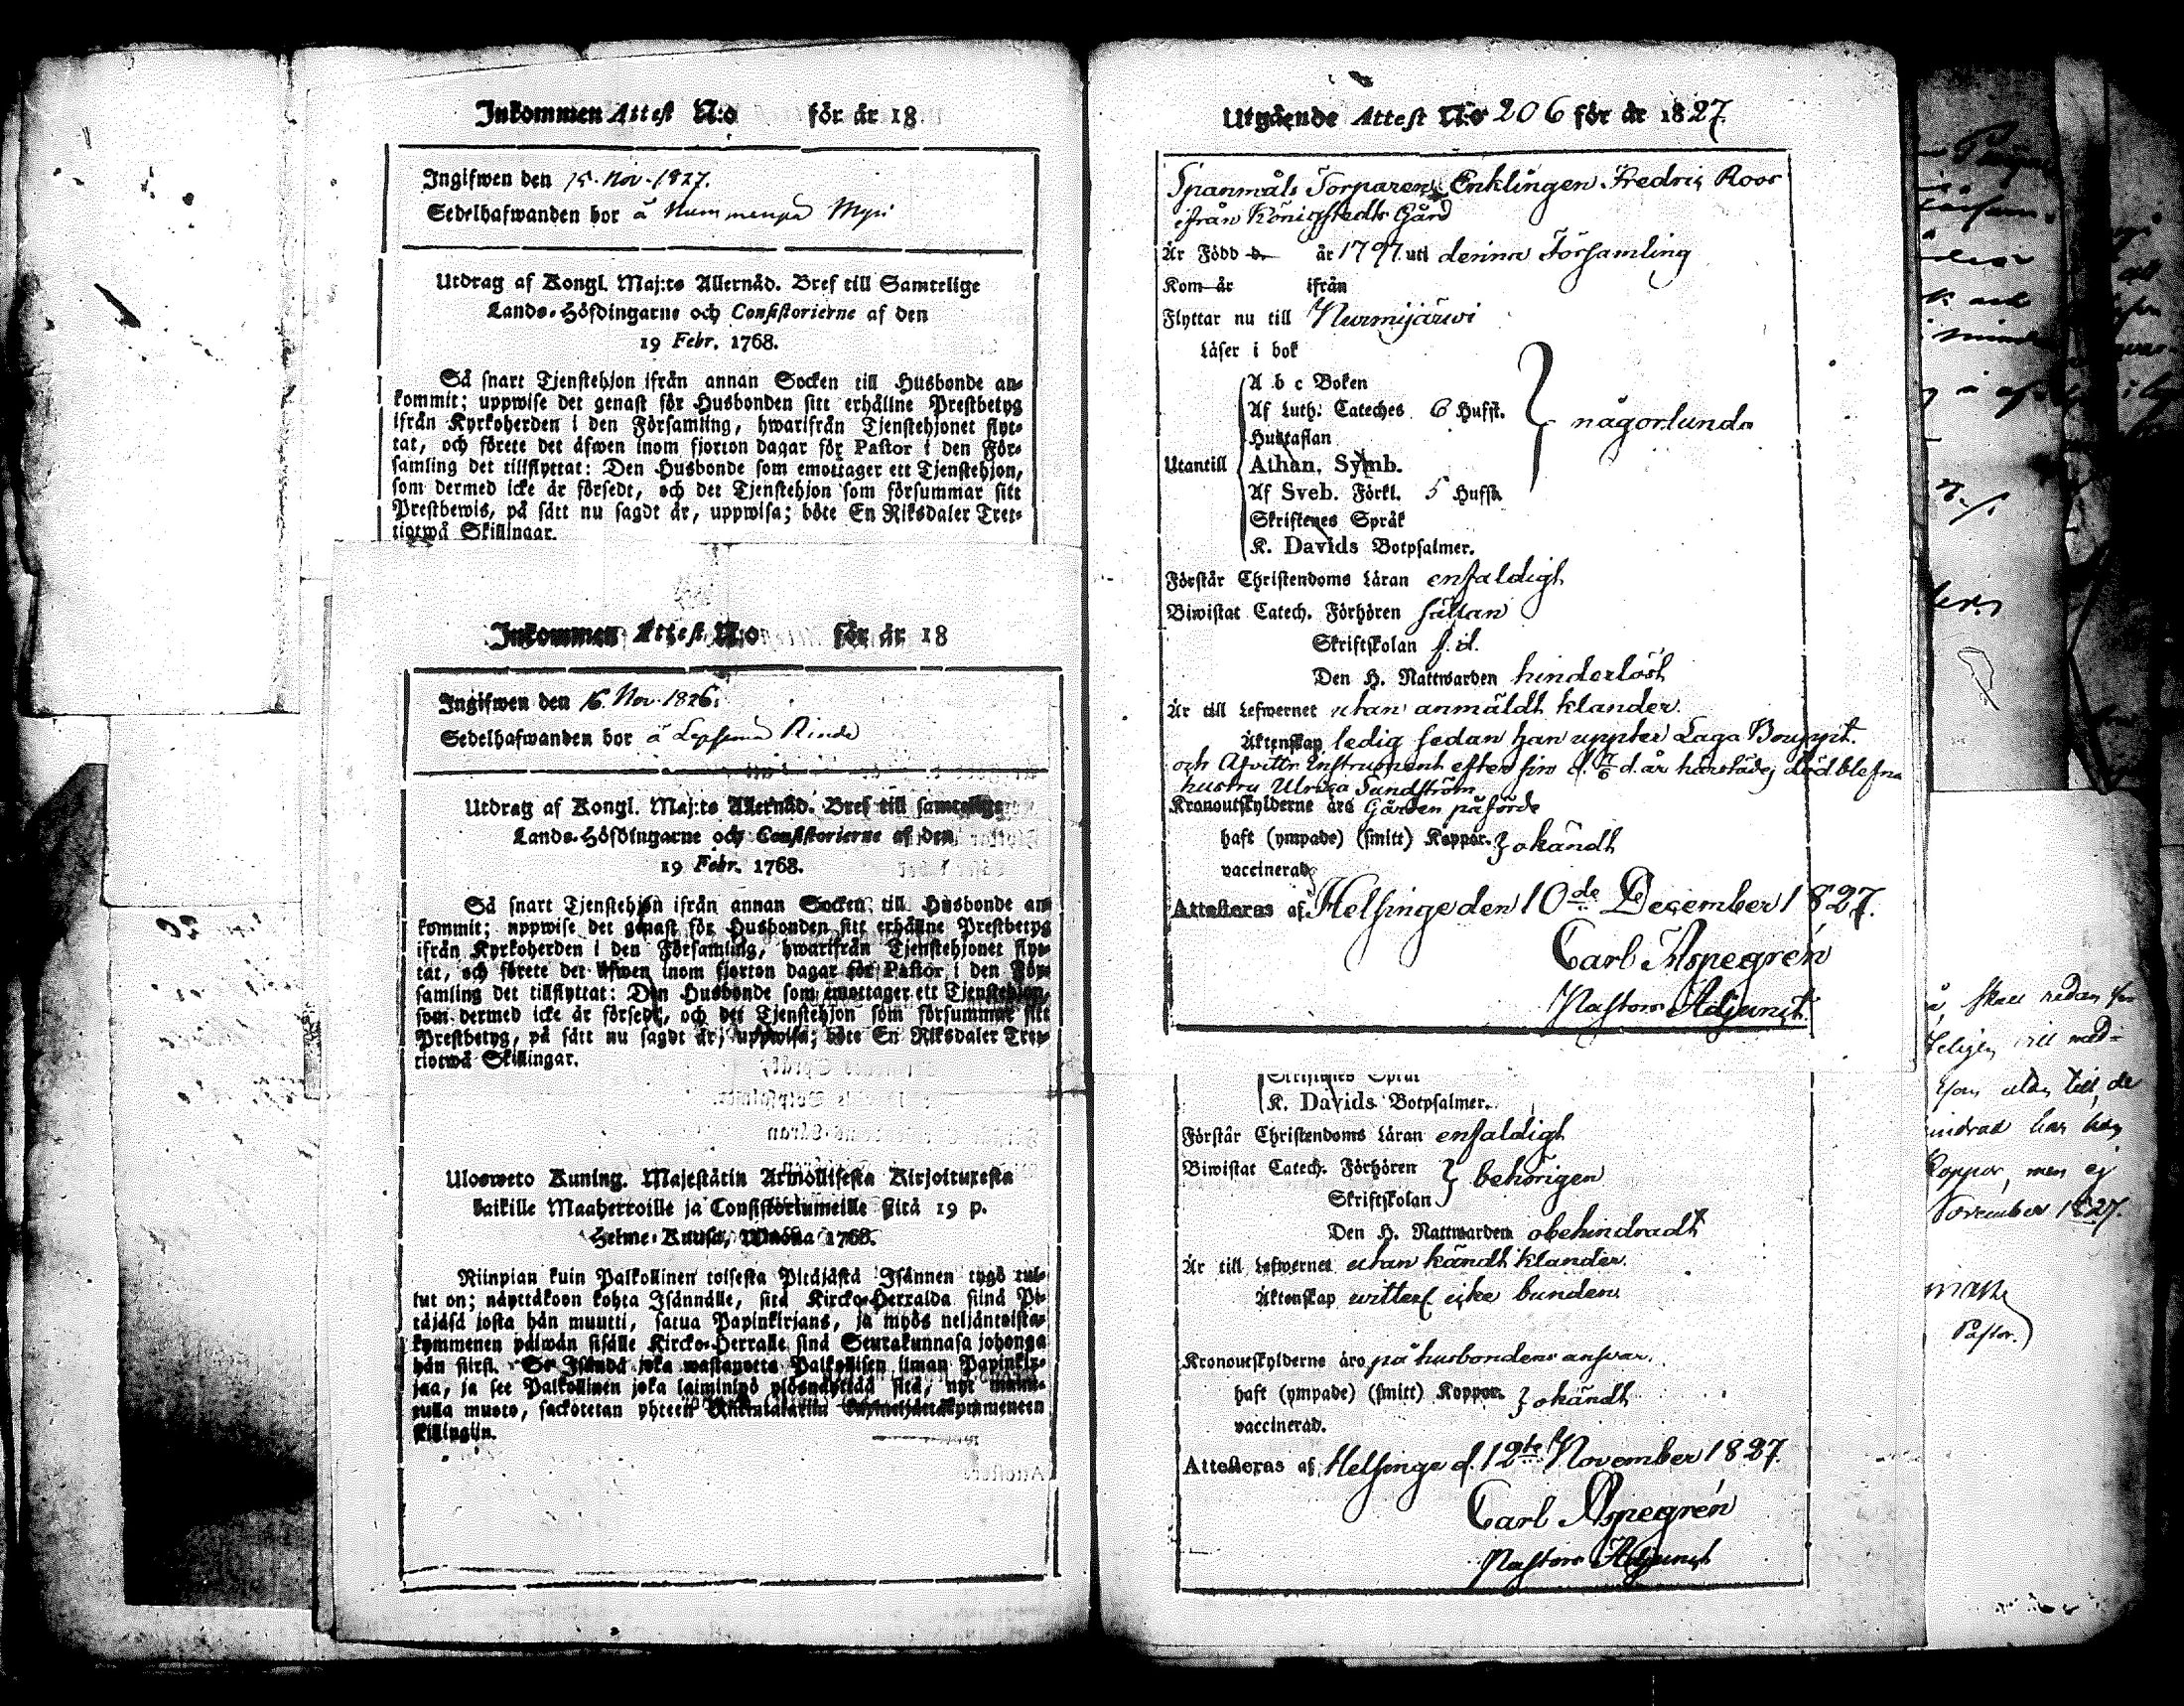 Inkommen Attest N:o för år 18
Ingifwen den 15. Nov. 1827.
Sedelhafwanden bor å Nummenpä Myri
Utdrag af Kongl. Maj:ts Allernåd. Bref till Samtelige
Lands-Höfdingarne och Consistorierne af den
19 Febr. 1768.
Så snart Tjenstehjon ifrån annan Socken till Husbonde an-
kommit; uppwise det genast för Husbonden sitt erhållne Prestbetyg
ifrån Kyrkoherden i den Församling, hwarifrån Tjenstehjonet flyt-
tat, och förete det äfwen inom fjorton dagar för Pastor i den För-
samling det tillflyttat: Den Husbonde som emottager ett Tjenstehjon,
som dermed icke är försedt, och det Tjenstehjon som försummar sitt
Prestbewis, på sätt nu sagdt är, uppwisa; böte En Riksdaler Tret-
tiotwå Skillingar.
Inkommen Attest N:o för år 18
Ingifwen den 16. Nov. 1826.
Sedelhafwanden bor å Lepsemä
Utdrag af Kongl. Maj:ts Allernåd. Bref till samtelige
Lands-Höfdingarne och Consistorierne af den
19 Febr. 1768.
Så snart Tjenstehjon ifrån annan Socken till Husbonde an-
kommit; uppwise det genast för Husbonden sitt erhållne Prestbetyg
ifrån Kyrkoherden i den Församling, hwarifrån Tjenstehjonet flyt-
tat, och förete det äfwen inom fjorton dagar för Pastor i den För-
samling det tillflyttat: Den Husbonde som emottager ett Tjenstehjon,
som dermed icke är försedt, och det Tjenstehjon som försummar sitt
Prestbetyg, på sätt nu sagdt är, uppwisa; böte En Riksdaler Tret-
tiotwå Skillingar.
Ulosweto Kuning. Majestätin Armollisesta Kirjoituxesta
kaikille Maaherroille ja Consistoriumeille siitä 19 p.
Helme-Kuusa, Wuonna 1768.
Riinpian kuin Palkollinen toisesta Pitäjästä Isännen tygö tul-
lut on; näyttäköön kohta Isännälle, sitä Kircko-Herralda siinä Pi-
täjäsä josta hän muutti, saatua Papinkirjans, ja myös neljäntoista-
kymmenen päiwän sisälle Kircko-Herralle siinä Seurakunnasa johonga
hän siirsi. Se Isändä joka wastanotta Palkollisen ilman Papinkir-
jaa, ja see Palkollinen joka laiminlyö ylösnäyttää sitä, nyt
muoto, sackotetan yhteen kymmeneen
Killingiin.
Utgående Attest N:o 206 för år 1827.
Spanmåls Torparen Enklingen Fredric Roos
ifrån Königstedts Gård
Är Född d. år 1797. uti denna Församling
Kom år ifrån
Flyttar nu till Nurmijärwi
Läser i bok
A b c Boken
Af Luth. Cateches 6 Hufst.
Hustaflan
någorlunda
Utantill Athan. Symb.
Af Sveb. Förkl. 5 Hufst.
Skriftenes Språk
K. Davids Botpsalmer.
Förstår Christendoms Läran enfaldigt
Biwistat Catech. Förhören sällan
Skriftskolan s. d.
Den H. Nattwarden hinderlöst
Är till Lefwernet utan anmäldt klander.
Äktenskap ledig sedan han uppter Laga Bouppt.
och Afvittr. Instrument efter sin d. 7/6 d. år härstädes död blefne
hustru Ulrica Sandström
Kronoutskylderne äro Gården påförde
haft (ympade) (smitt) Koppor. } okändt
vaccinerad
Attesteras af Helsinge den 10de December 1827.
Carl Aspegrén
Pastors Adjunct.
Skriftenes Språk
K. Davids Botpsalmer.
Förstår Christendoms Läran enfaldigt
Biwistat Catech. Förhören } behörigen
Skriftskolan
Den H. Nattwarden obehindradt
Är till Lefwernet utan kändt klander.
Äktenskap witterl. icke bunden
Kronoutskylderne äro på husbondens answar.
haft (ympade) (smitt) Koppor. } okändt
vaccinerad.
Attesteras af Helsinge d. 12te November 1827.
Carl Aspegrén
Pastors Adjunct
å, skall redan
till, de
har han
Koppor, men ej
November 1827.
Pastor.